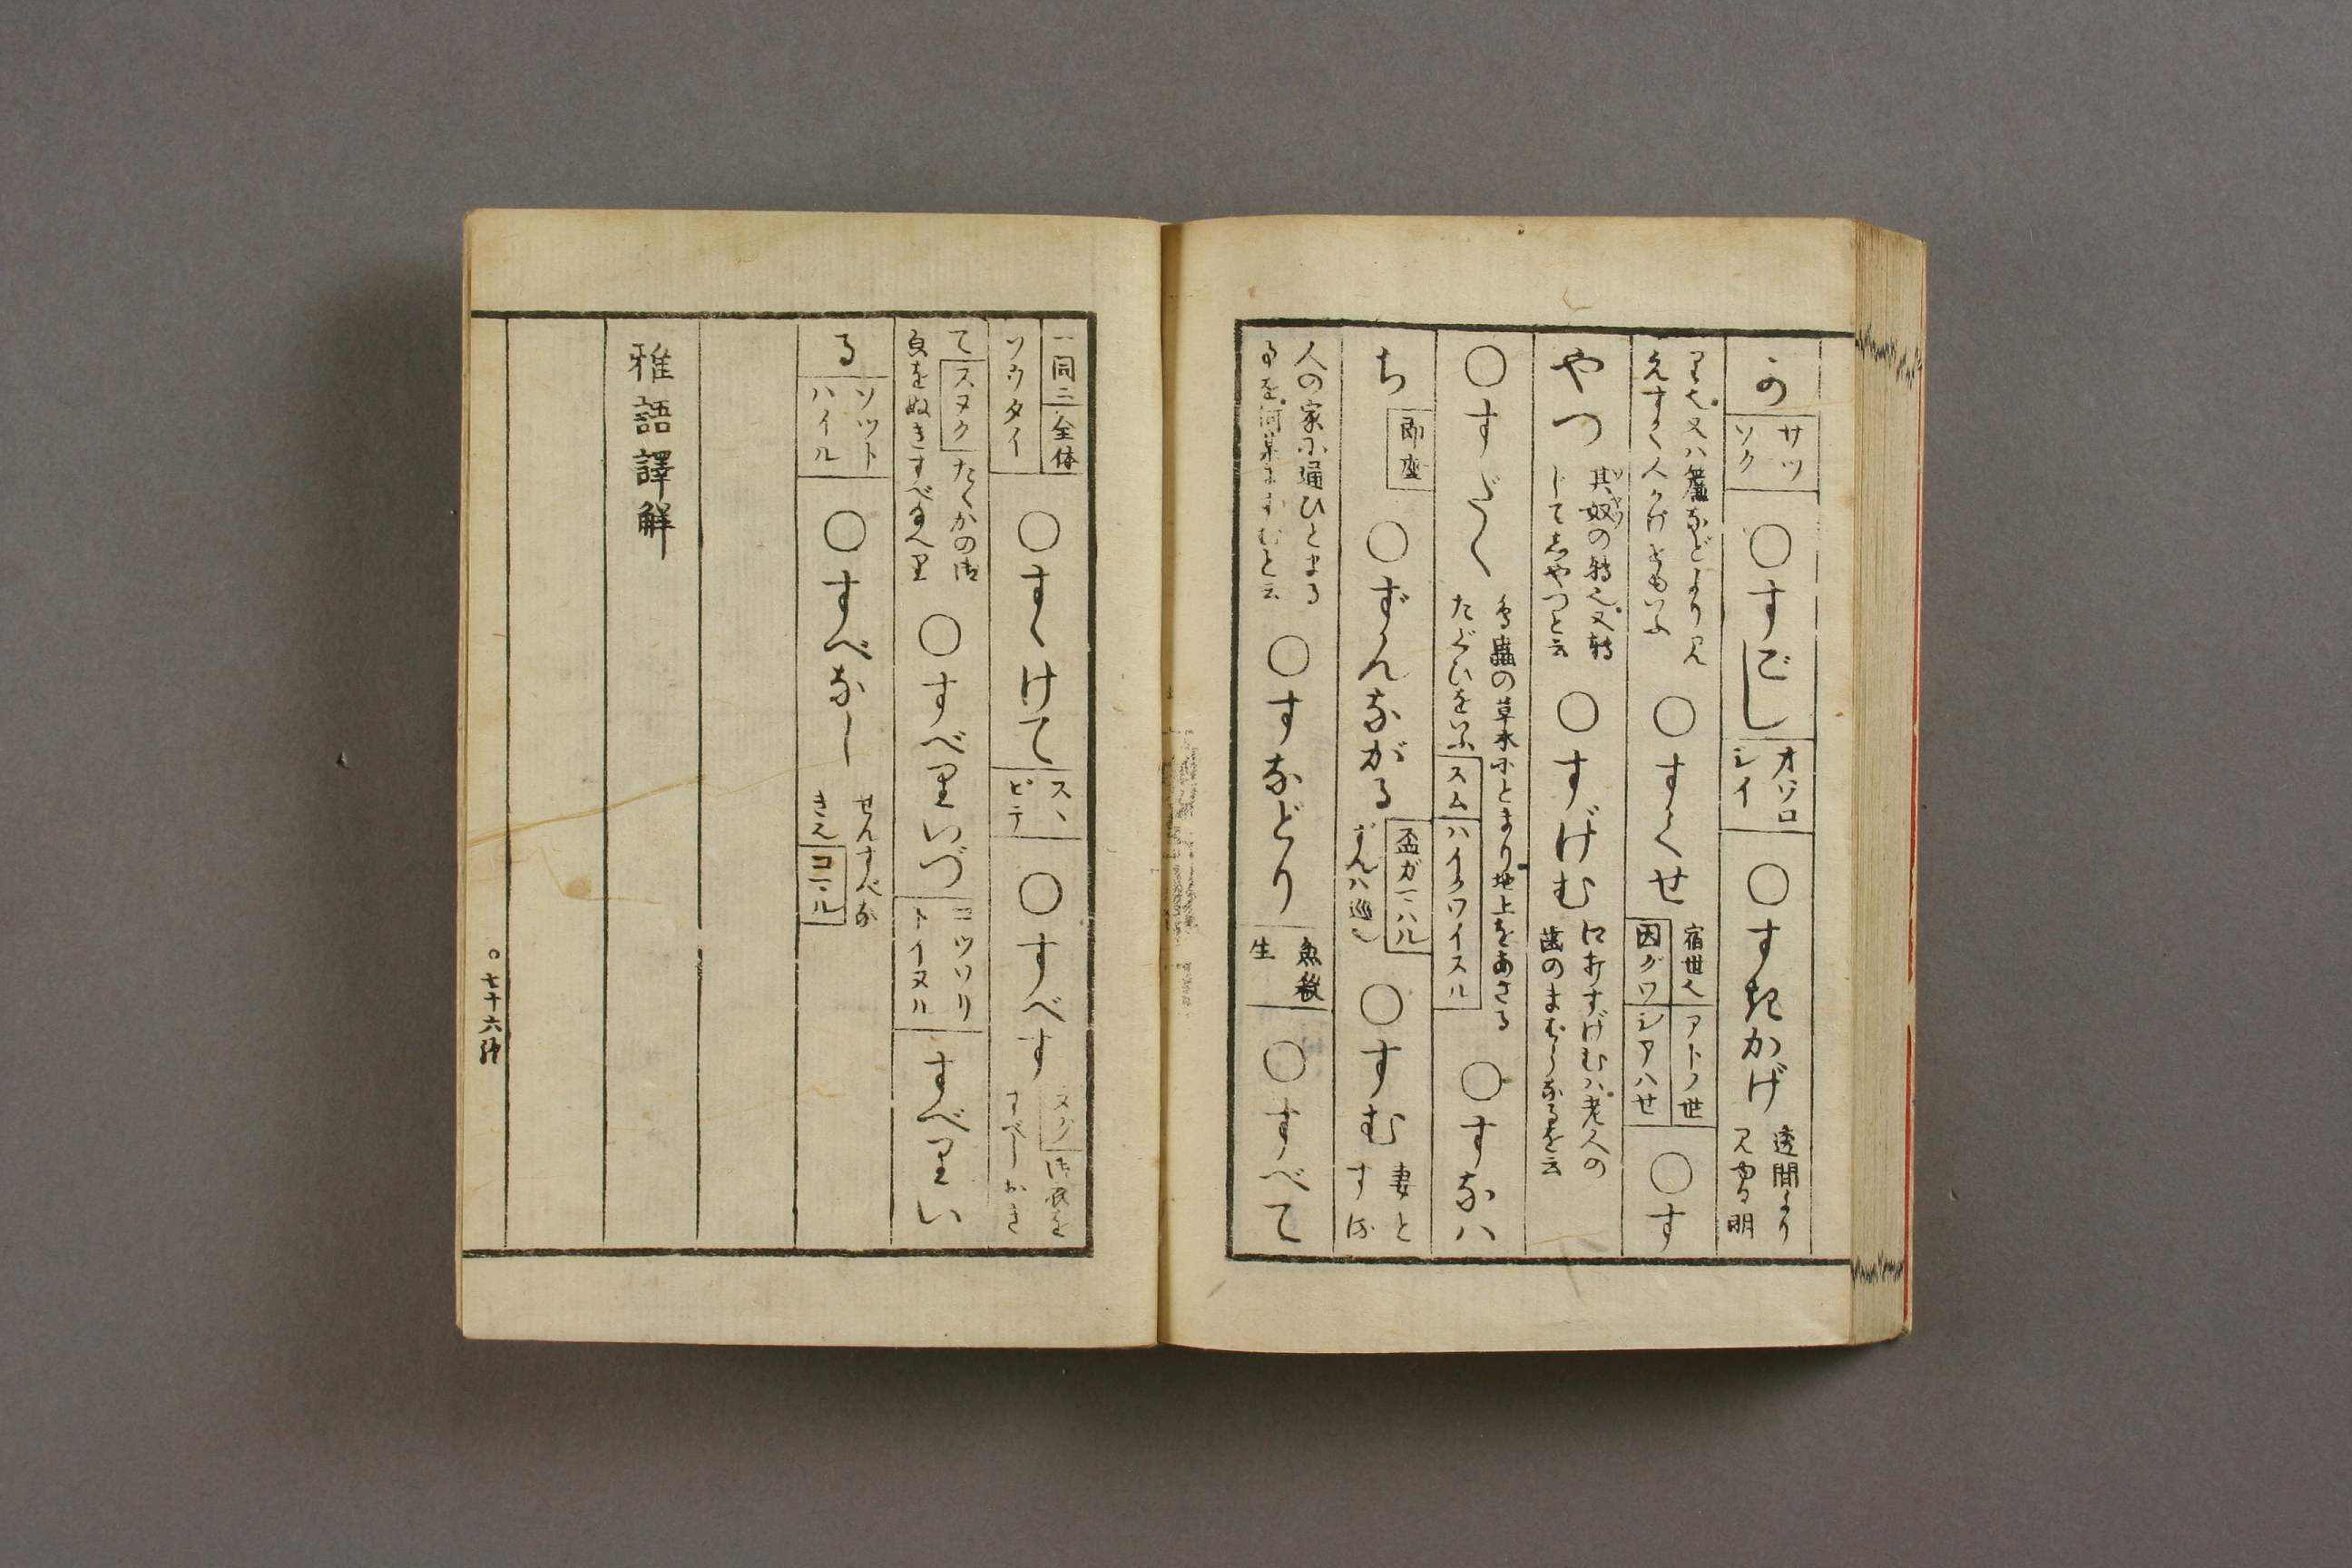 か サツソク ○すごし オソロシイ ○すきかげ 透間より見ゆる明
りalso又ハ簾などより見えすく人かげをもいふ ○すくせ 宿世也 アトノ世 因グワ シアハせ ○す
やつ 其奴の転也又転じてしやつと云 ○すげむ 口おすげむハ老人の歯のまむしなるを云
○すだく 鳥蟲の草木にとまり地上をあさるたぐひをいふ スム ハイクワイスル ○すなハ
ち 即座 ○ずんながる 盃ガマハル ずんハ巡也 ○すむ 妻とする
人の家に通ひとまるを何某にすむと云 ○すなどり 魚殺生 ○すべて
一同ニ 全体 ソウタイ ○すゝけて スヽビテ ○すべす ヌグ 御衣をすべしおき
て スヌク たくかの御 ○すべりいづ コツソリトイヌル すべりい
る ソツトハイル ○すべなし せんすべなき也 コマル
雅語譯解
○七十六終